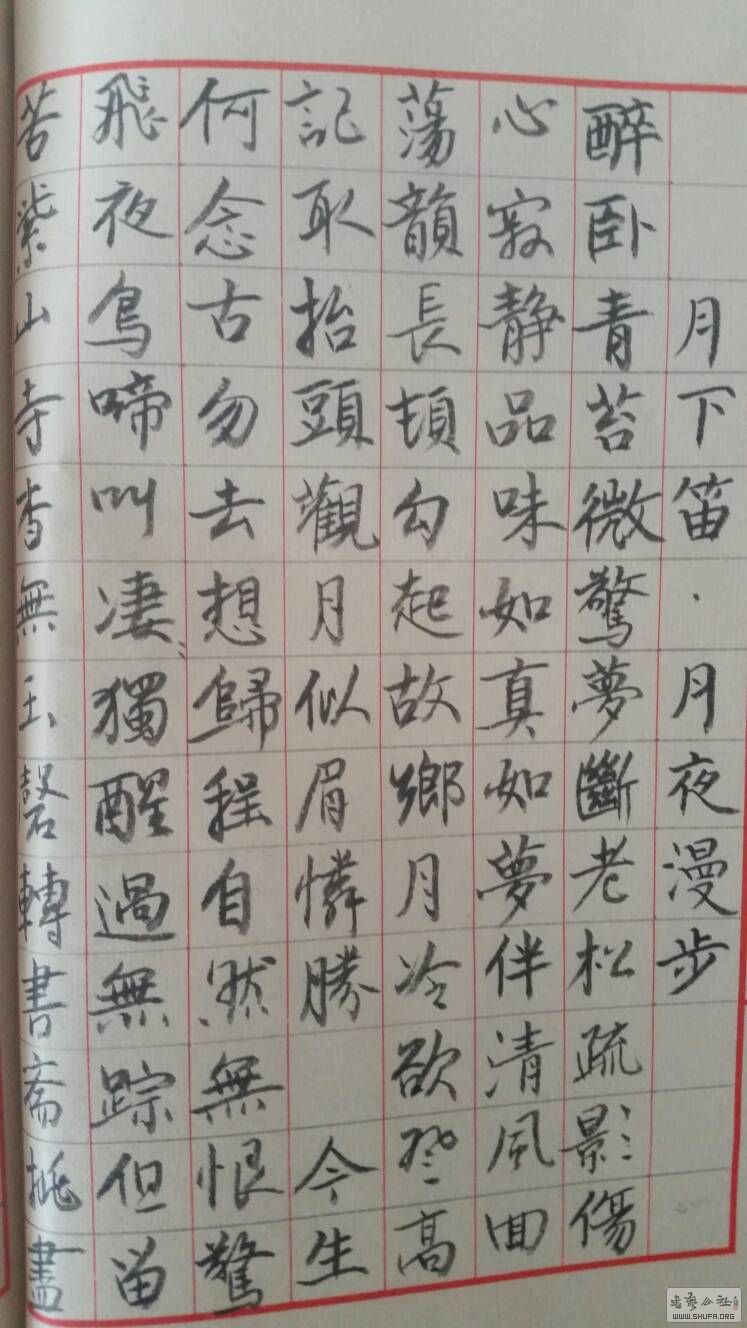 月下笛·月夜漫步
醉卧青苔微驚夢斷老松疏影傷
心寂静品味如真如夢伴清風回
蕩韻長頓勾起故鄉月冷欲登高
記取抬頭觀月似眉憐勝 今生
何念古勿去想歸程自然無恨驚
飛夜鳥啼叫凄獨醒過無踪但留
苦紫山寺杳無玉磬轉書斋挑盡
WWW.SHUFA.ORG